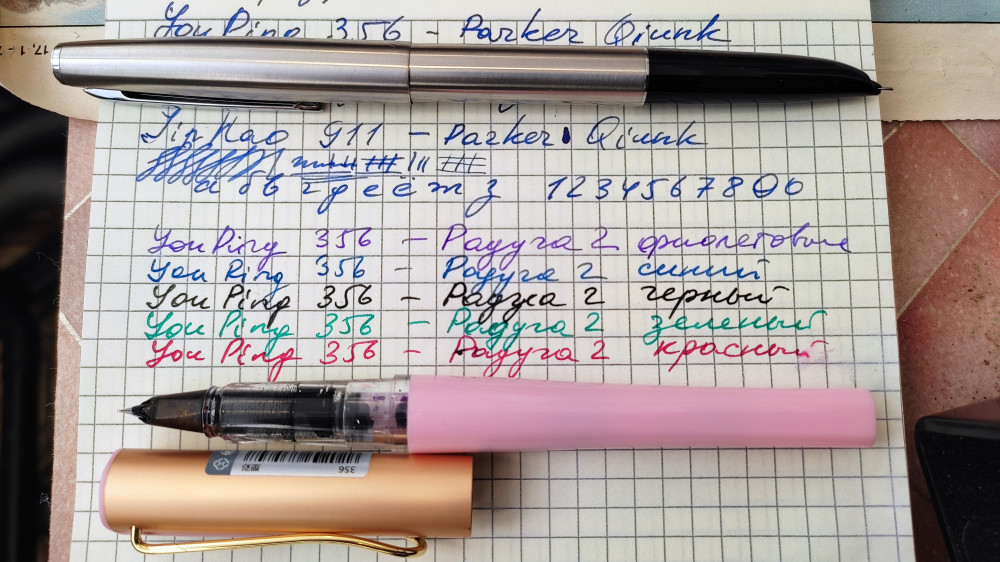 You Ping 356 – Parker Qiunk
JinHao 911 – Parker Qiunk
а б в г д е ё ж з 1 2 3 4 5 6 7 8 9 0 0
You Ping 356 – Радуга 2 фиолетовые
You Ping 356 – Радуга 2 синий
You Ping 356 – Радуга 2 черный
You Ping 356 – Радуга 2 зеленый
You Ping 356 – Радуга 2 красный
356